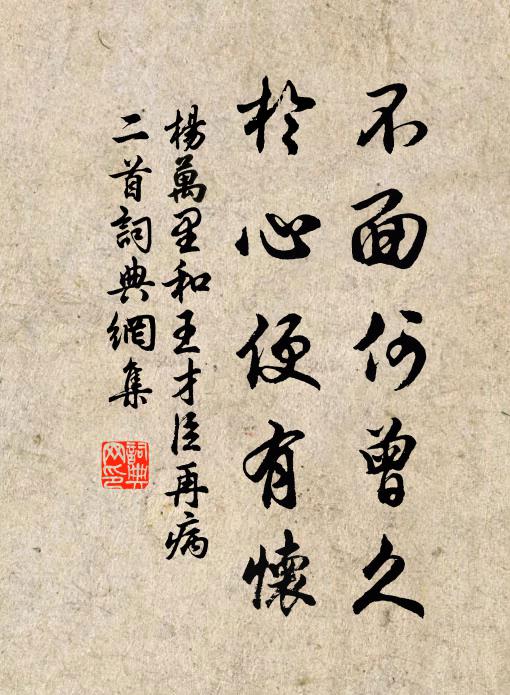 不面何曾久
於心便有懷
楊萬里和王才臣再病
二首詞典網集
詞典
网印